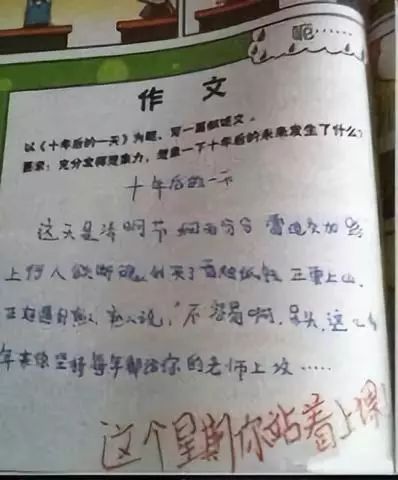 呃……
作 文
以《十年后的一天》为题,写一篇记叙文。
要求:充分发挥想象力,想象一下十年后的未来发生了什么?
十年后的一天
这天是清明节 细雨纷纷 雷电交加 路
上行人欲断魂, 我买了 纸钱 正要上山,
正好遇到熟人, 熟人说,“不容易啊, 呆头, 这么多
年来你坚持每年都给你的老师上坟……
这个星期你站着上课!